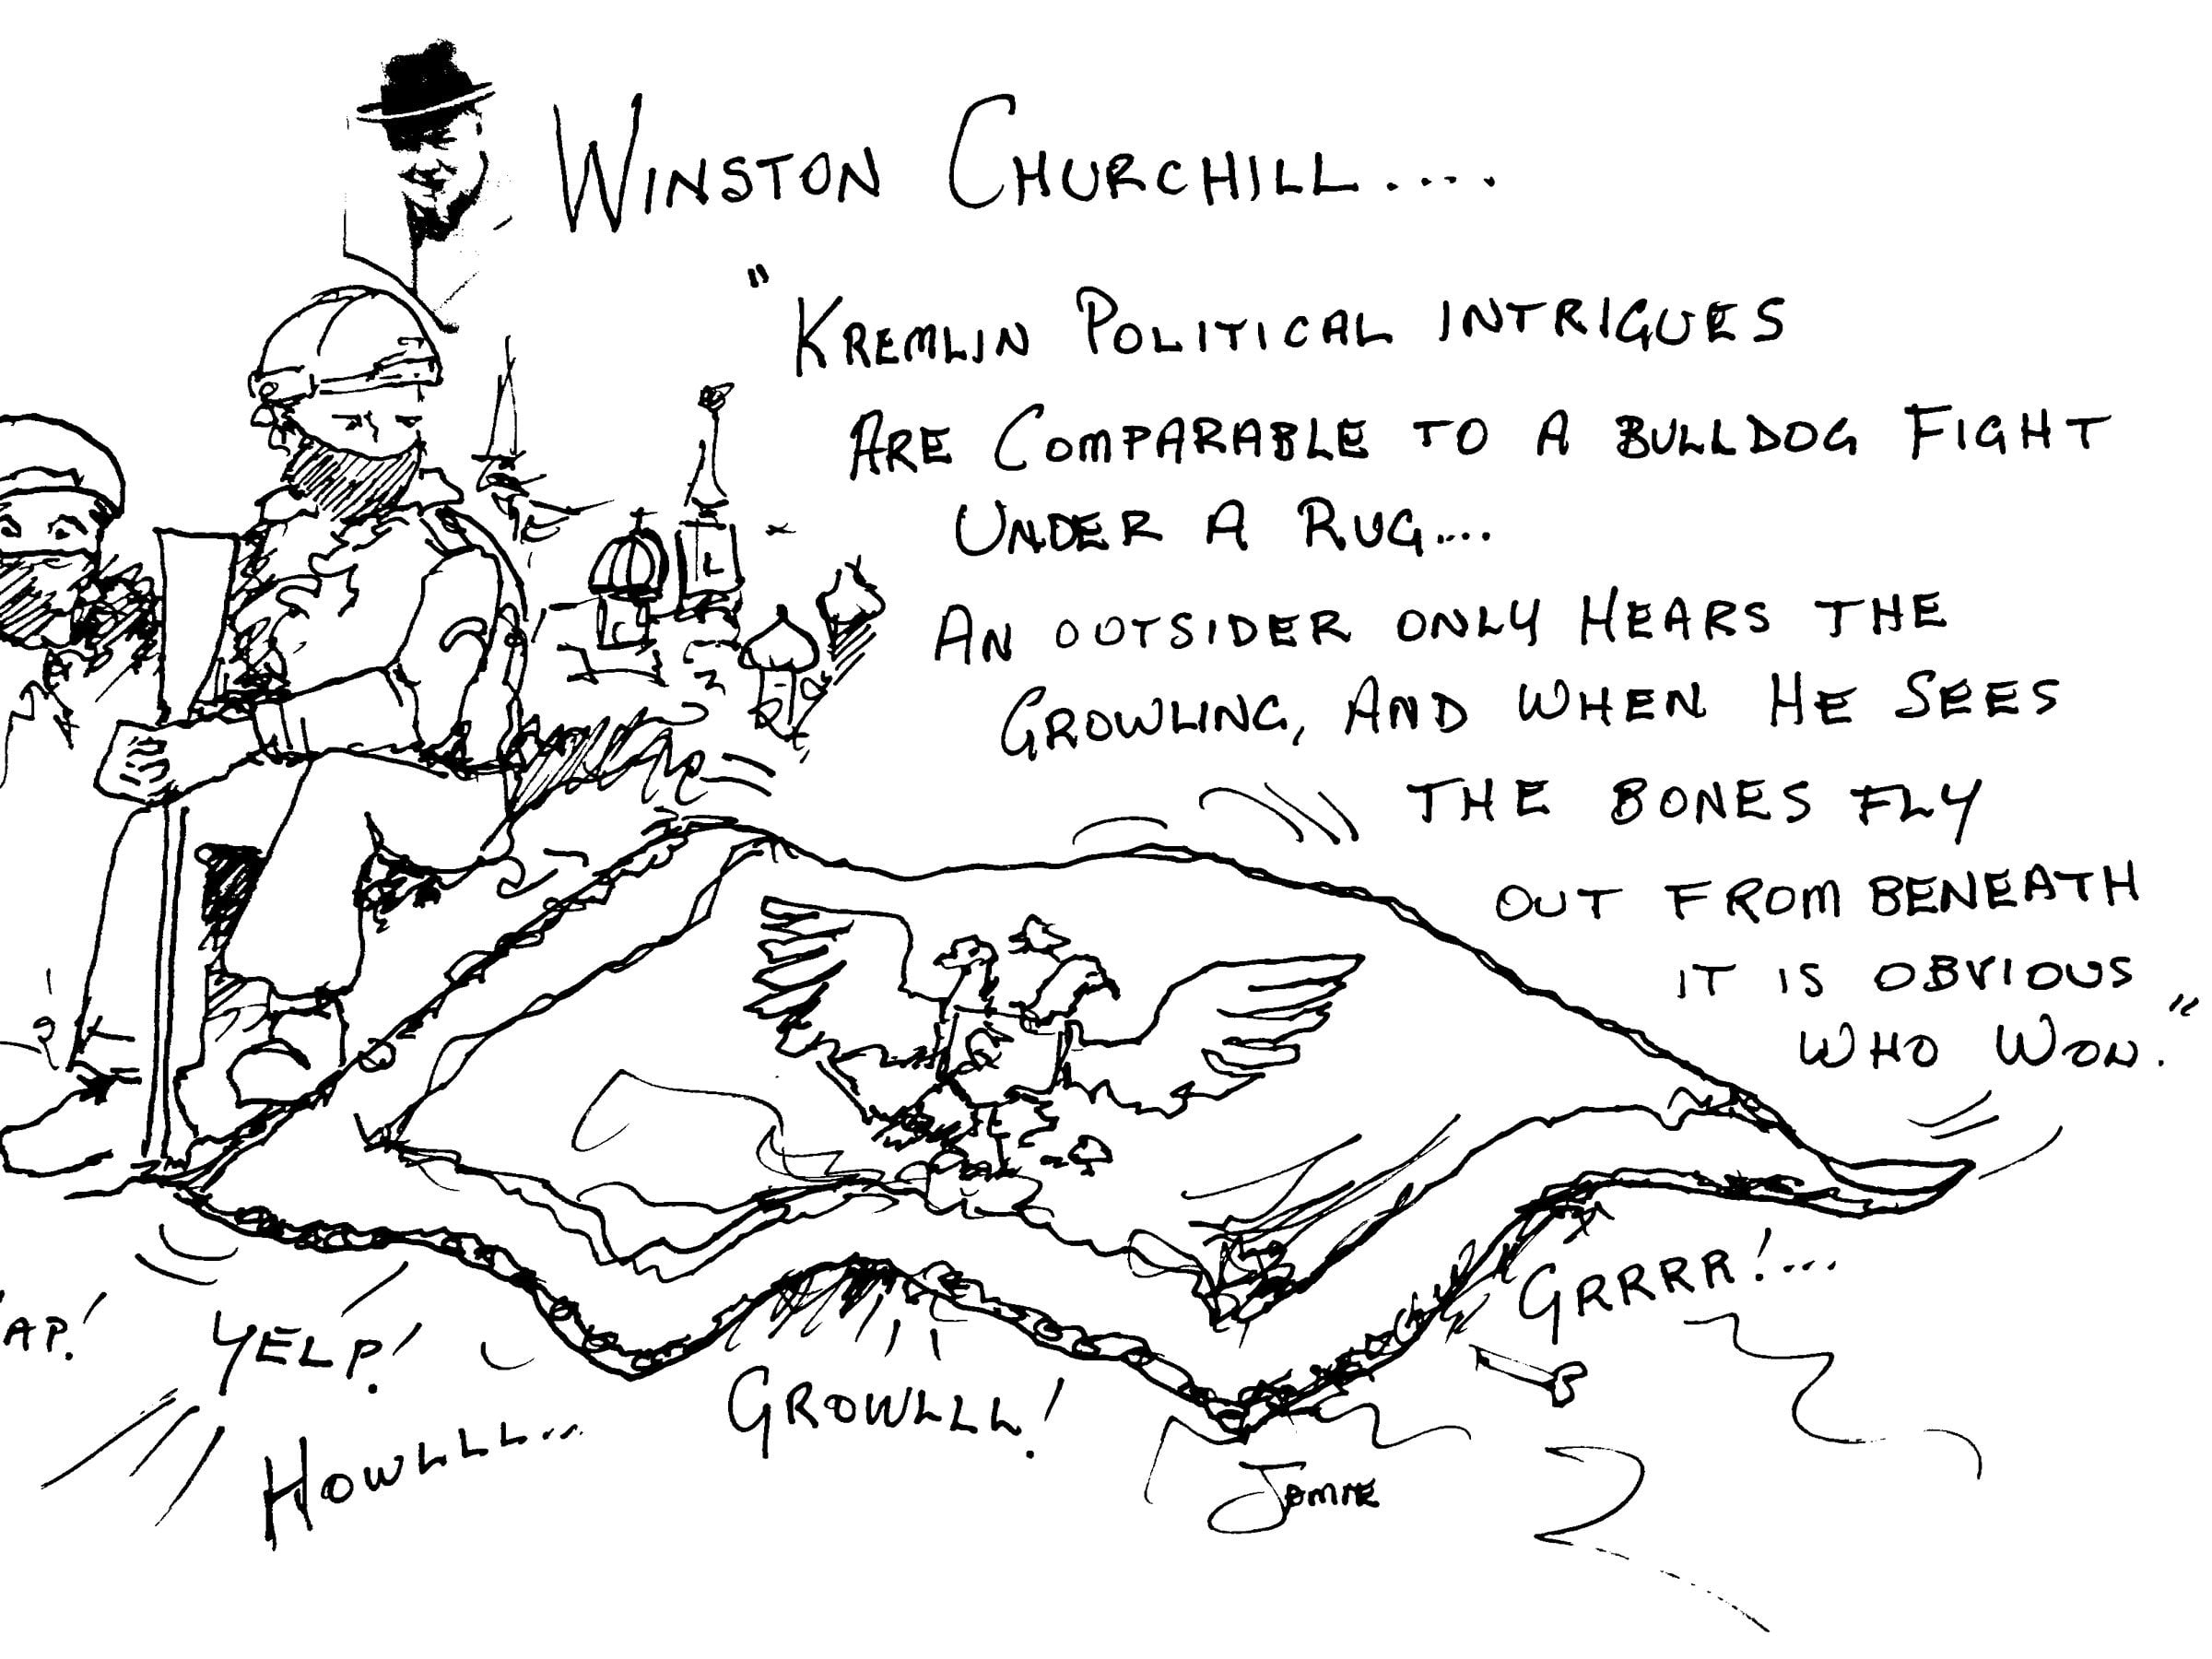 WINSTON CHURCHILL....
"KREMLIN POLITICAL INTRIGUES
ARE COMPARABLE TO A BULLDOG FIGHT
UNDER A RUG...
AN OUTSIDER ONLY HEARS THE
GROWLING, AND WHEN HE SEES
THE BONES FLY
OUT FROM BENEATH
IT IS OBVIOUS
WHO WON."
GRRRR!...
AP!
YELP!
GROWLLL!
HOWLLL...